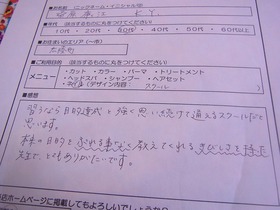 ■お名前 (ニックネーム・イニシャル可)
K.T.
■年代 (該当するものに丸をつけてください)
10代・20代・30代・40代・50代・60代以上
■お住まいのエリア(一本)
■ご利用目的 (該当するものに丸をつけてください)
メニュー
・カット ・カラー ・パーマ ・トリートメント
・ヘッドスパ ・シャンプー ・ヘアセット
・ネイル (デザイン内容 スクール)
■感想
習うなら目的達成と強く思い続けて通えるスクールだと
思います。
私の目的とぶれる事なく教えてくれるきびしさを持った
先生で、とてもありがたいです。
店ホームページに掲載してもよろしいでしょうか